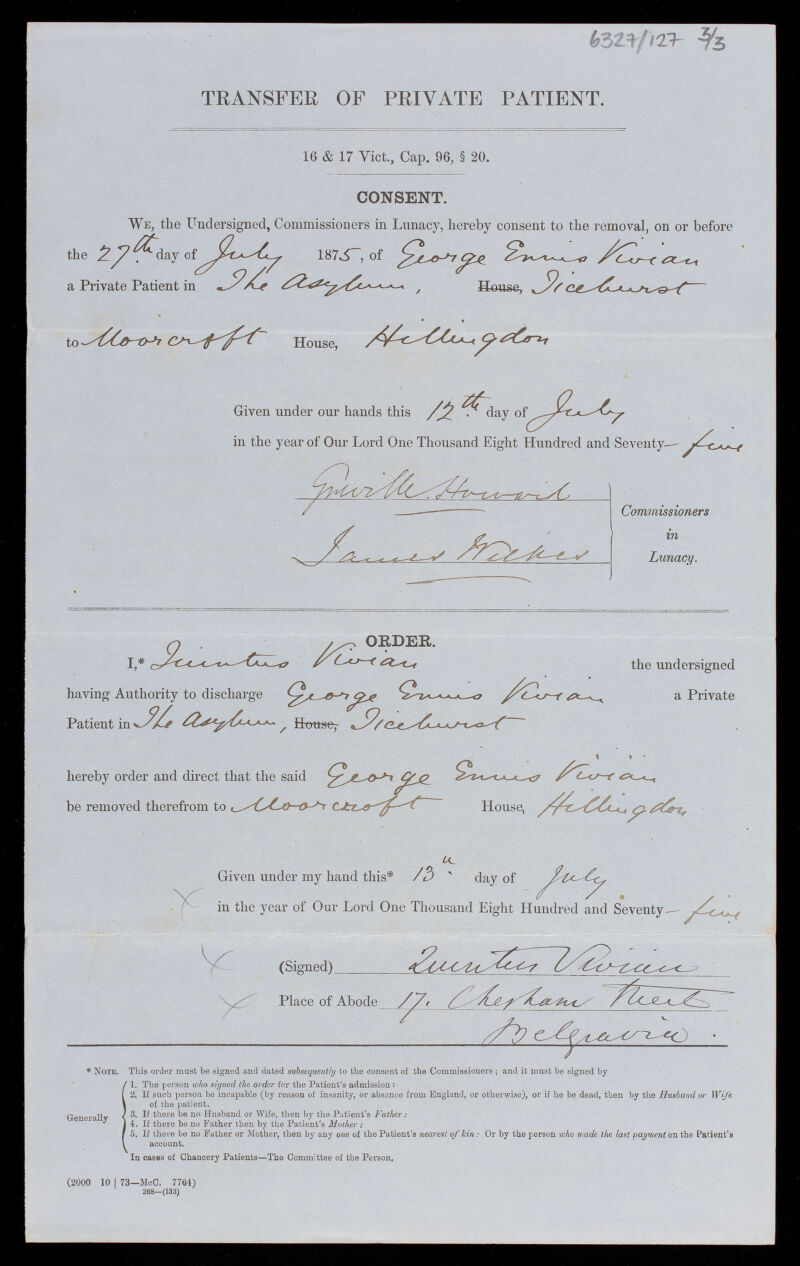 6327/127 3/3
TRANSFER OF PRIVATE PATIENT.
16 & 17 Vict., Cap. 96, § 20.
CONSENT.
WE, the Undersigned, Commissioners in Lunacy, hereby consent to the removal, on or before
the 27th day of July 1875, of George Ennis Vivian
a Private Patient in The Asylum, House, Ticehurst
to Moorcroft House, Hillingdon
Given under our hands this 12th day of July
in the year of Our Lord One Thousand Eight Hundred and Seventy- five
Greville Howard
Commissioners
in
James Wilkes
Lunacy.
ORDER.
I,* Quintus Vivian the undersigned
having Authority to discharge George Ennis Vivian a Private
Patient in The Asylum, House, Ticehurst
hereby order and direct that the said George Ennis Vivian
be removed therefrom to Moorcroft House, Hillingdon
Given under my hand this* 13th day of July
x in the year of Our Lord One Thousand Eight Hundred and Seventy- five
x (Signed) Quintus Vivian
x Place of Abode 17. Chesham Street
Belgravia.
* NOTE. This order must be signed and dated subsequently to the consent of the Commissioners; and it must be signed by
1. The person who signed the order for the Patient's admission:
2. If such person be incapable (by reason of insanity, or absence from England, or otherwise), or if he be dead, then by the Husband or Wife
of the patient.
Generally
3. If there be no Husband or Wife, then by the Patient's Father:
4. If there be no Father then by the Patient's Mother:
5. If there be no Father or Mother, then by any one of the Patient's nearest of kin: Or by the person who made the last payment on the Patient's
account.
In cases of Chancery Patients—The Committee of the Person.
(2000 10 | 73—McC. 7764)
268—(133)